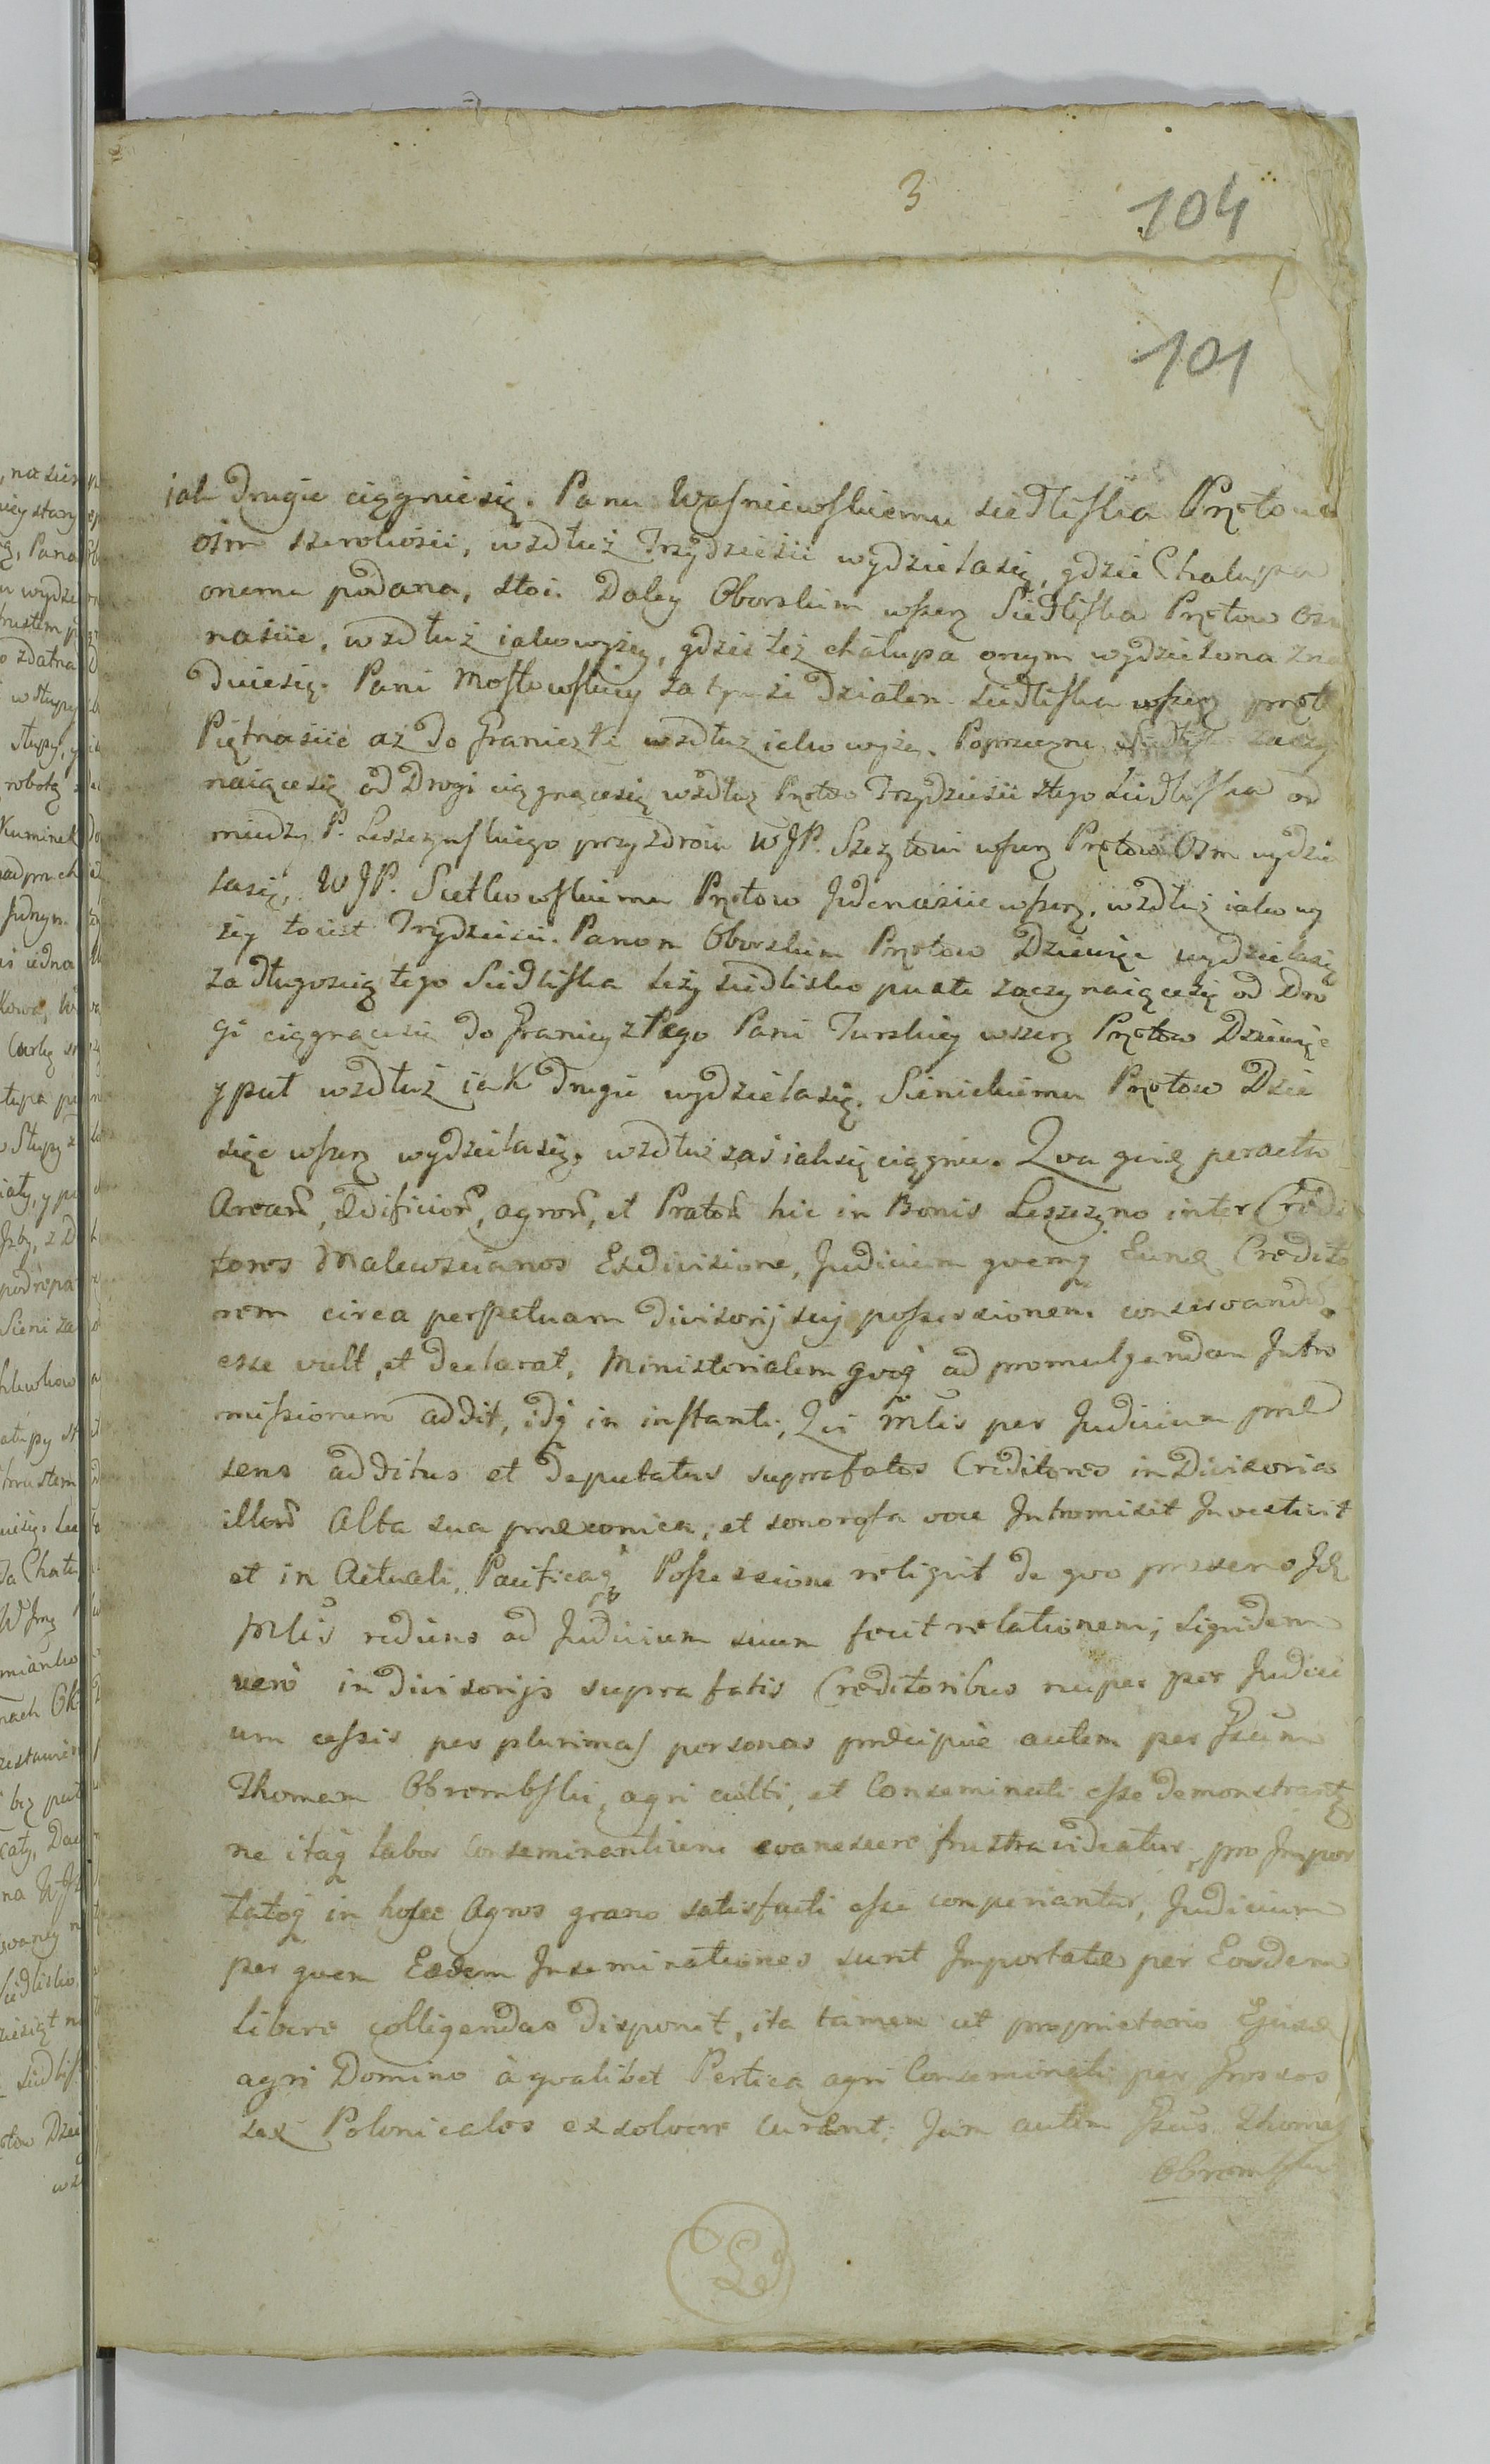 3
104
101
iak drugie ciągnie się. Panu Waśniewskiemu siedliska Prętow
osm szerokości, wzdłuż Trzydzieści wydziela się, gdzie Chałupa
onemu podana, stoi. Daley Oborskim wszerz Siedliska Prętow Osm
naście, wzdłuż iako wyżey, gdzie też chałupa onym wydzielona zna
duie się. Pani Mostowskiey za tymże działem siedliska wszerz pręt
Piętnaście aż do Graniczki wzdłuż iako wyżey. Poprzeczne Siedlisko zaczy
naiące się od Drogi ciągnące się wzdłuż Prętow Trzydzieści z tego Siedliska od
miedzy P. Leszczynskiego przy zdroiu WJP. Szczytowi wszerz Prętow Osm wydzie
la się, WJP. Sietkowskiemu Prętow Jedenaście wszerz, wzdłuż iako wy
żey to iest Trzydzieści. Panom Oborskim Prętow Dziewięć wydziela się
za długością tego Siedliska leży siedlisko puste zaczynaiące się od Dro
gi ciągnące się do Granicy z Pago Pani Turskiey wszerz Prętow Dziewięć
y puł wzdłuż iak drugie wydziela się. Sienickiemu Prętow Dzie
sięc wszerz wydziela się, wzdłuż zaś iak się ciągnie. Qva qide peracta
Arearū, Ædificiorū, agrorū, et Pratorū hic in Bonis Leszczyno inter Credi
tores Malewscianos Exdivisione, Judicium qvemq Eund Credito
rem circa perpetuam divisorij suj possessionem conservandū
esse vult, et declarat, Ministerialem qvoq ad promulgandam Intro
missionem addit, idq in instanti, Qui Mlis per Judicium præ
sens additus et deputatus suprafatos Creditores in Divisorias
illorū Alta sua præconica, et sonorosa voce Intromisit Investivit
et in Actuali, Pacificaq Possessione reliqvit de qvo præsens Id
Mlis rediens ad Judicium suum fecit relationem; Siqvidem
verò in divisorijs supra fatis Creditoribus nuper per Judici
um cessis per plurimas personas præcipuè autem per Gsum
Thomam Obrembski, agri culti, et Conseminati esse demonstrantꝛ
ne itaq labor Conseminantium evanescere frustra videatur, pro Impor
tatoq in hosce Agros grano satisfacti esse comperiantur, Judicium
per qvem Eædem Inseminationes sunt Importatæ per Eosdem
libere colligendas disponit, ita tamen ut proprietario Ejusd
agri Domino à qvalibet Pertica agri Conseminati per Grossos
sex Polonicales exsolvere curent; Jam autem Gsus Thomas
Obrembski